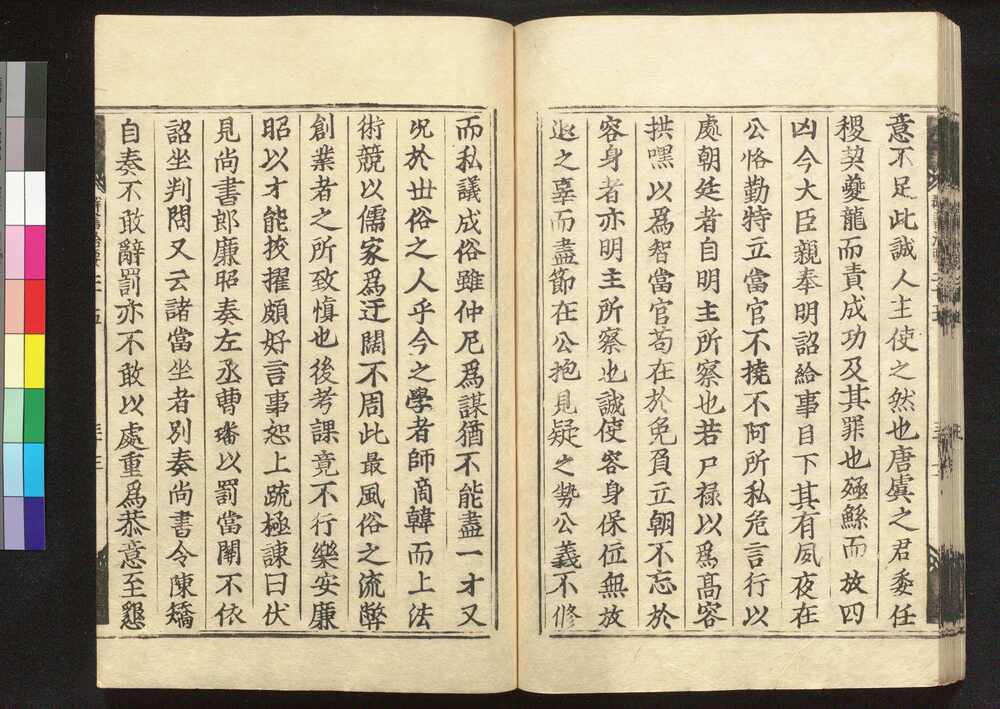 意不足此誠人主使之然也唐虞之君委任
稷契夔龍而責成功及其罪也殛鯀而放四
凶今大臣親奉明詔給事目下其有夙夜在
公恪勤特立當官不撓不阿所私危言行以
處朝廷者自明主所察也若尸禄以爲高容
拱嘿以爲智當官苟在於免負立朝不忘於
容身者亦明主所察也誠使容身保位無放
退之辜而盡節在公抱見疑之勢公義不修
而私議成俗雖仲尼爲謀猶不能盡一才又
况於丗俗之人乎今之學者師商韓而上法
術競以儒家爲迂闊不周此最風俗之流弊
創業者之所致慎也後考課竟不行樂安廉
昭以才能拔擢頗好言事恕上䟽極諌曰伏
見尚書郎廉昭奏左丞曹璠以罰當關不依
詔坐判問又云諸當坐者別奏尚書令陳矯
自奏不敢辭罰亦不敢以處重爲恭意至懇